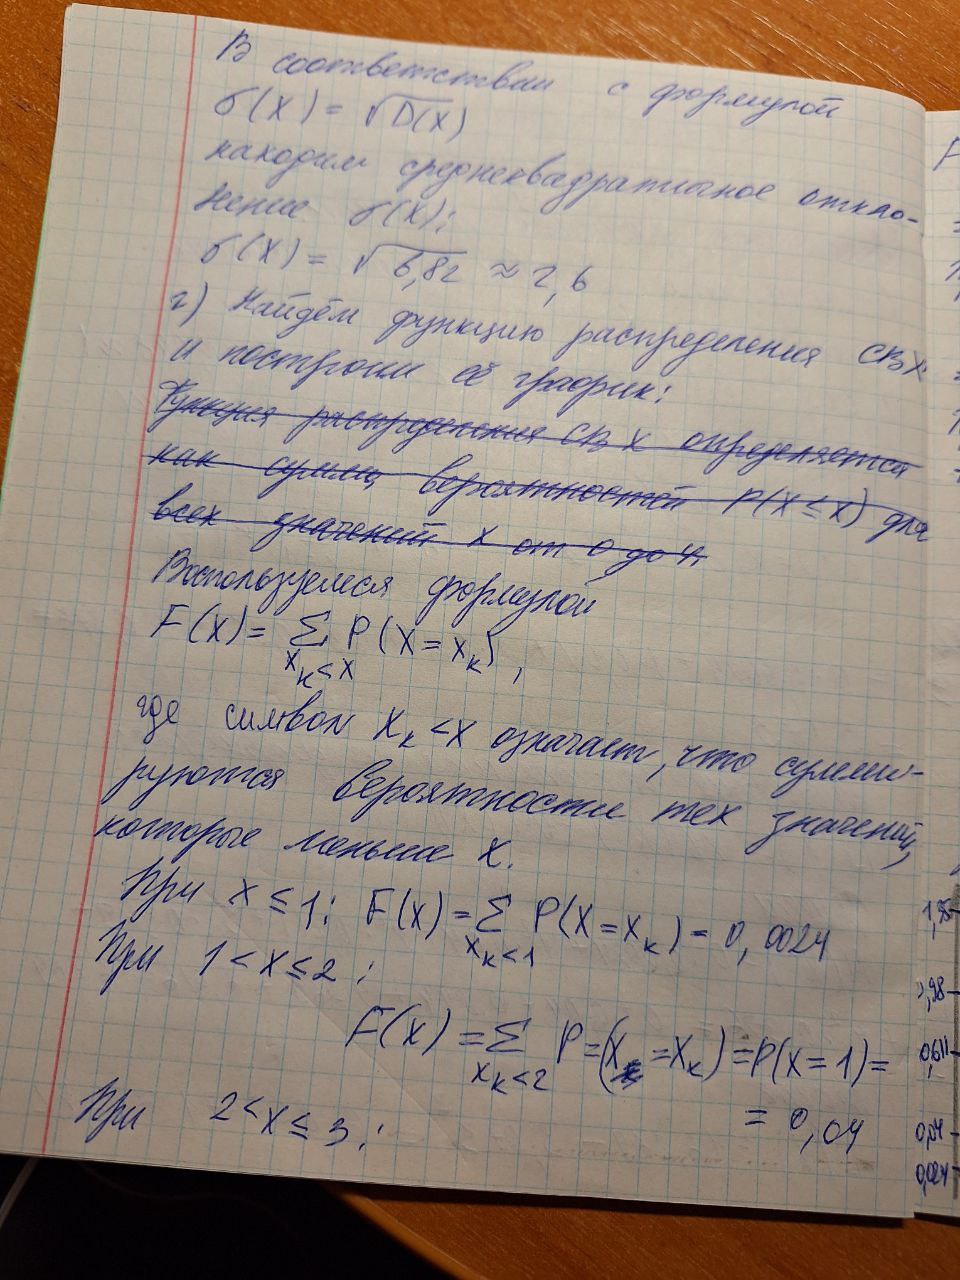 В соответствии с формулой
σ(X) = √D(X)
находим среднеквадратичное откло-
нение σ(X):
σ(X) = √6,82 ≈ 2,6
г) Найдём функцию распределения СВ X
и построим её график:
Функция распределения СВ X определяется
как сумма вероятностей P(X ≤ x) для
всех значений x от 0 до 4.
Воспользуемся формулой
F(x) = Σ P(X = xₖ),
xₖ<x
где символ xₖ < x означает, что сумми-
руются вероятности тех значений,
которые меньше x.
При x ≤ 1: F(x) = Σ P(X = xₖ) = 0,0024
xₖ<1
При 1 < x ≤ 2:
F(x) = Σ P = (X = xₖ) = P(X = 1) =
xₖ<2
= 0,04
При 2 < x ≤ 3:
F
0,98
0,611
0,04
0,024